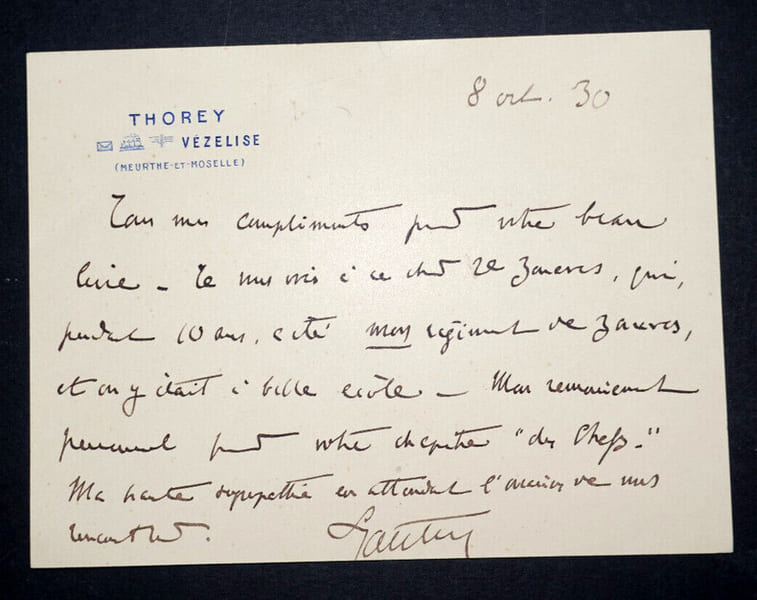 8 oct. 30
THOREY
VÉZELISE
(MEURTHE-ET-MOSELLE)
Tous mes compliments pour votre beau
livre - Je me vois à ce cher 2e Zouaves, qui,
pendant 10 ans, a été mon régiment de Zouaves,
et on y était à belle école - Mon remerciement
personnel pour votre chapitre "des Chefs."
Ma haute sympathie en attendant l'occasion de vous
rencontrer.
Lyautey